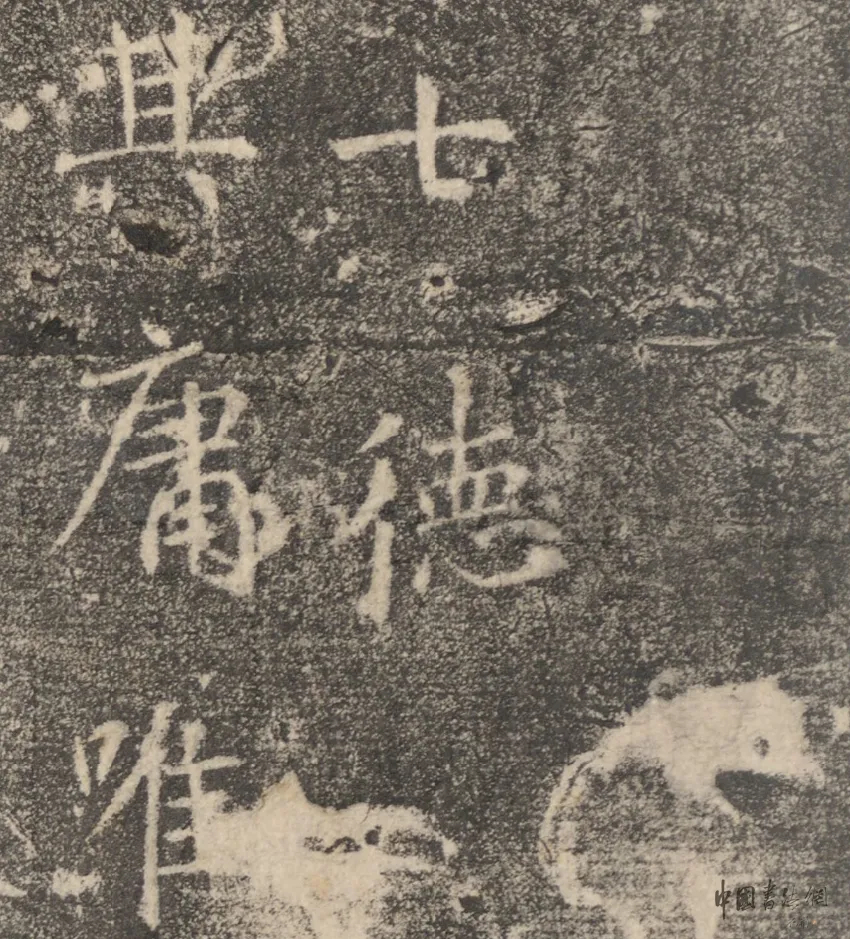 七德
庸唯
中國書法網